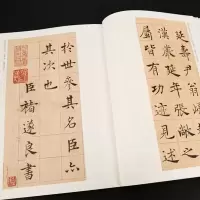 延壽尹翁
漢嚴延年張敞之
屬皆有功迹見述
於世參其名臣亦
其次也
臣褚遂良書